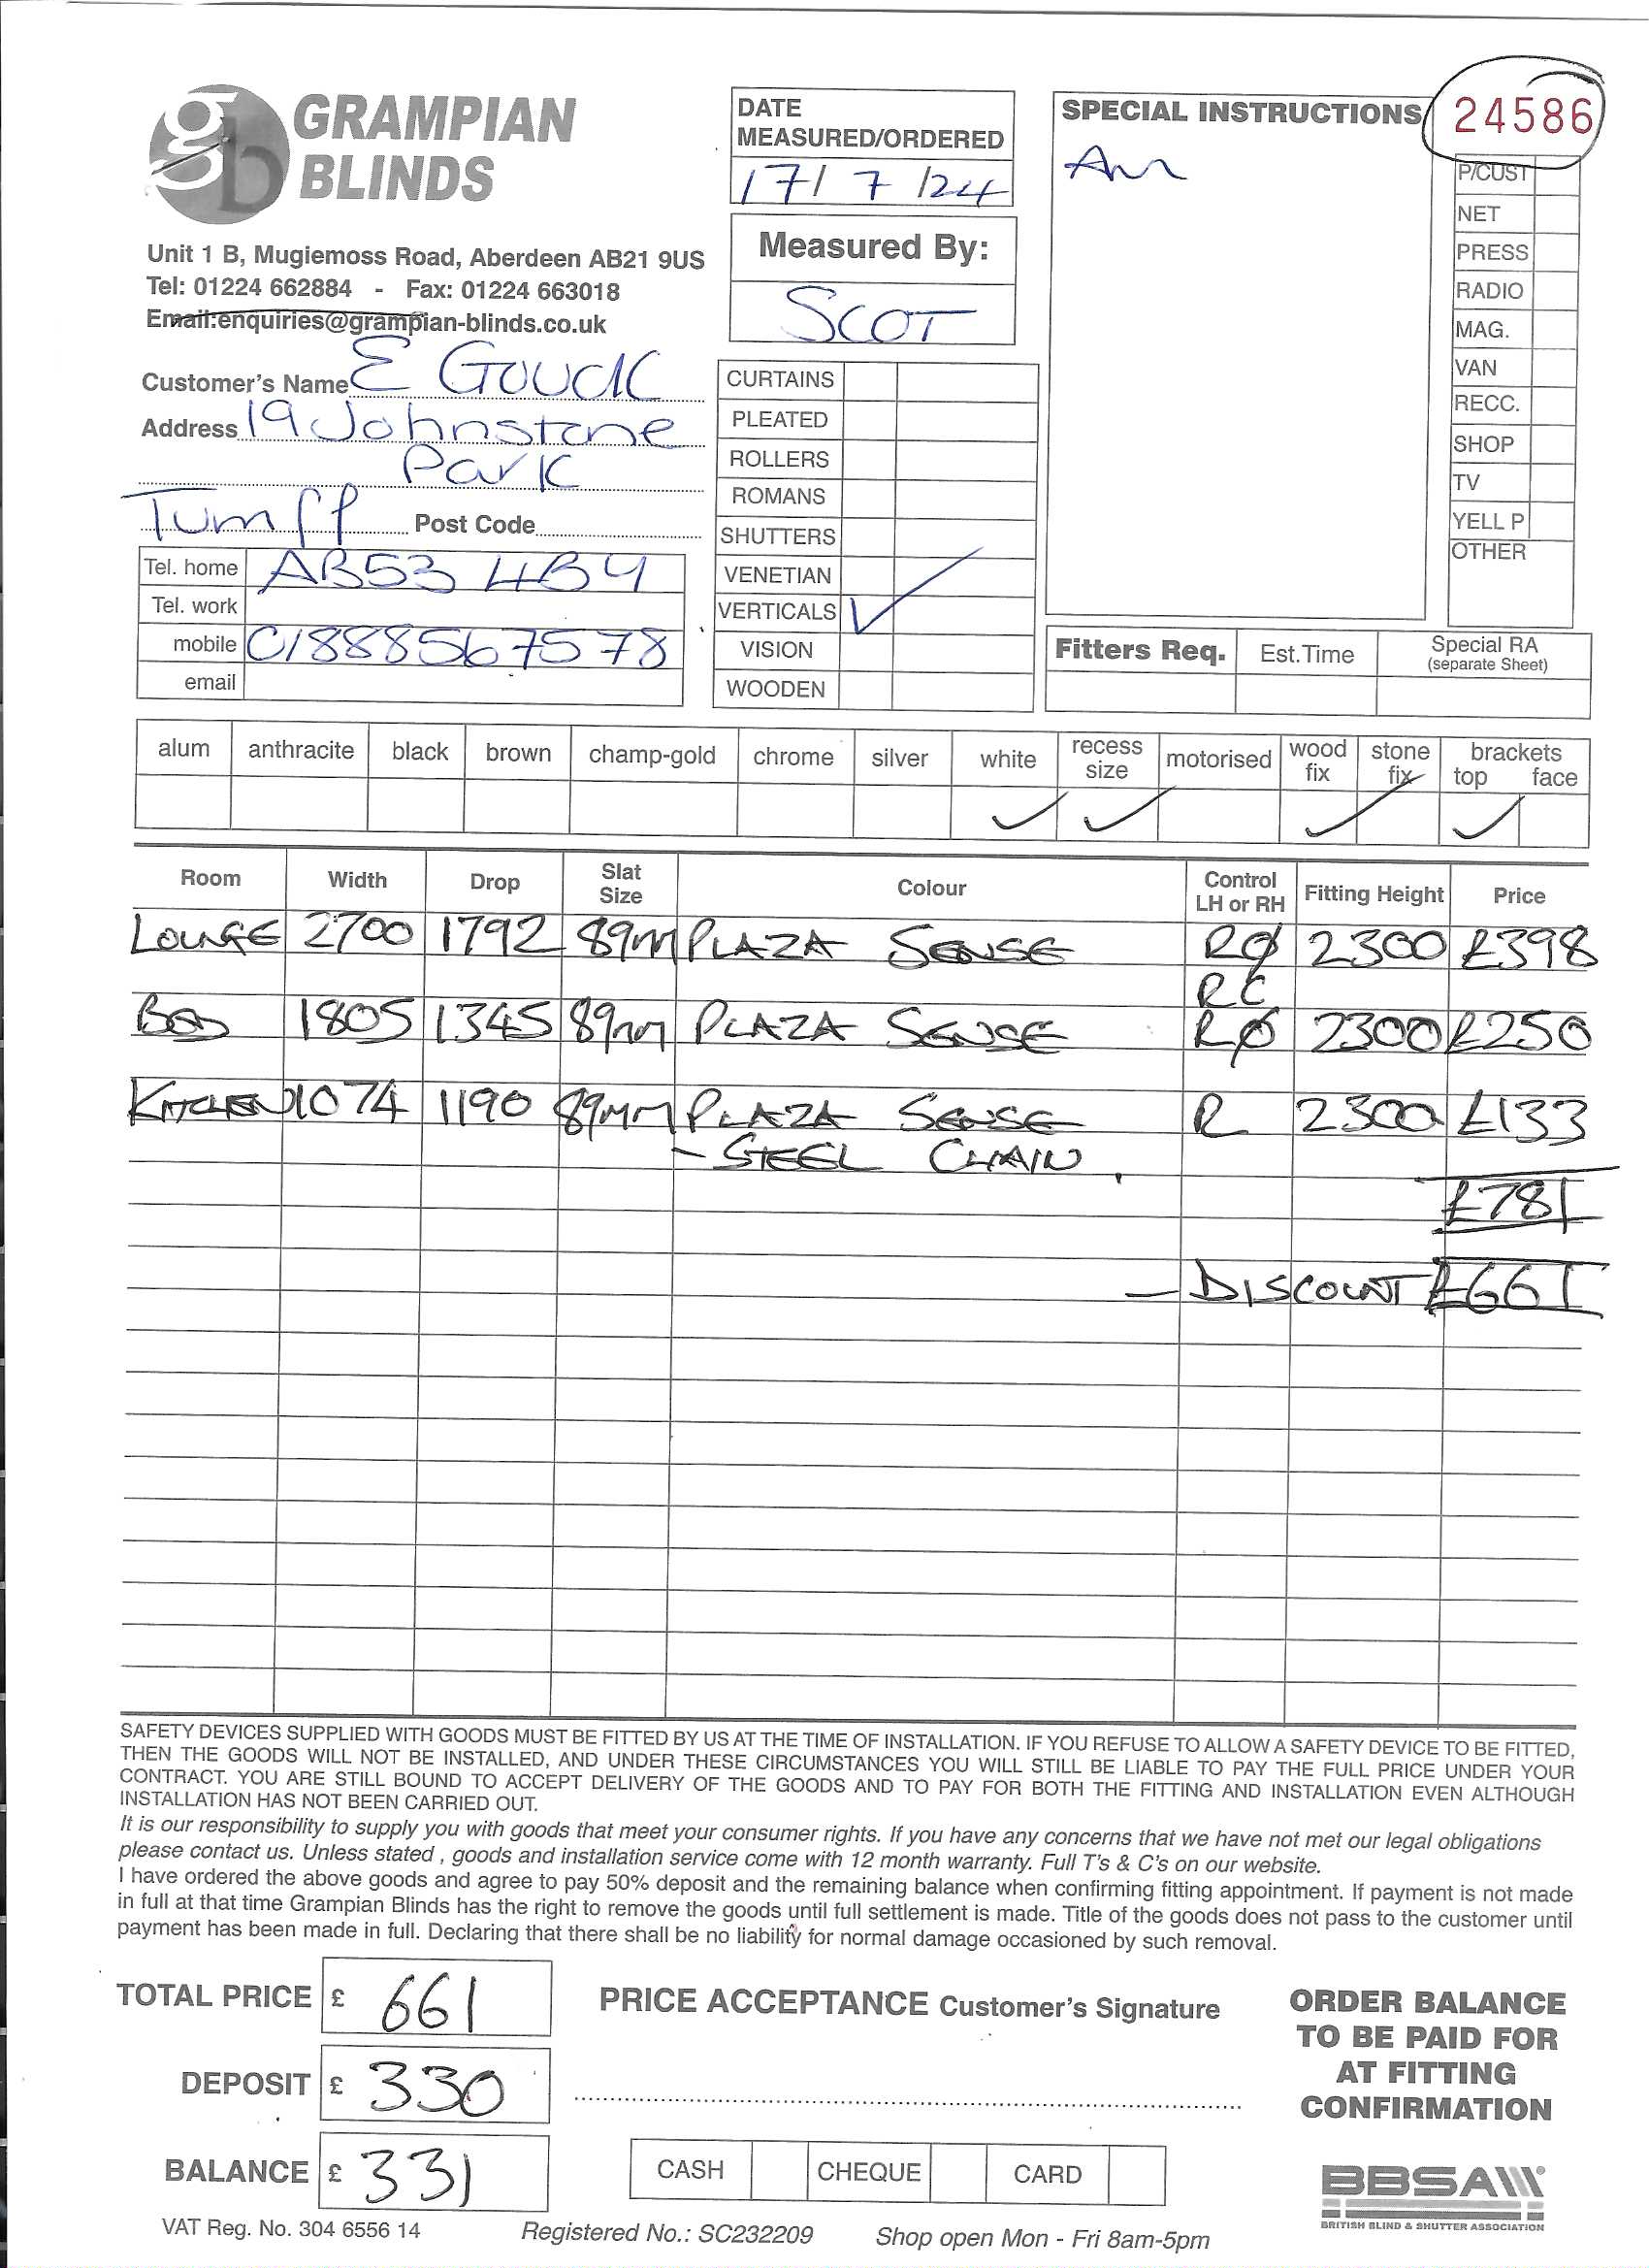 GRAMPIAN
BLINDS
Unit 1 B, Mugiemoss Road, Aberdeen AB21 9US
Tel: 01224 662884 - Fax: 01224 663018
Email:enquiries@grampian-blinds.co.uk
Customer's Name E Gouck
Address 19 Johnstone
Park
Turriff Post Code
Tel. home AB53 4BY
Tel. work
mobile 01888567578
email
DATE
MEASURED/ORDERED
17/ 7 /24
Measured By:
SCOT
CURTAINS
PLEATED
ROLLERS
ROMANS
SHUTTERS
VENETIAN
VERTICALS ✓
VISION
WOODEN
SPECIAL INSTRUCTIONS
Am
24586
P/CUST
NET
PRESS
RADIO
MAG.
VAN
RECC.
SHOP
TV
YELL P
OTHER
Fitters Req. Est.Time Special RA
(separate Sheet)
alum anthracite black brown champ-gold chrome silver white recess size motorised wood fix stone fix brackets top face
✓ ✓ ✓ ✓
Room Width Drop Slat Size Colour Control LH or RH Fitting Height Price
LOUNGE 2700 1792 89mm PLAZA SENSE RØ 2300 £398
RC
BED 1805 1345 89mm PLAZA SENSE RØ 2300 £250
KITCHEN 1074 1190 89mm PLAZA SENSE R 2300 £133
- STEEL CHAIN
£781
- DISCOUNT £661
SAFETY DEVICES SUPPLIED WITH GOODS MUST BE FITTED BY US AT THE TIME OF INSTALLATION. IF YOU REFUSE TO ALLOW A SAFETY DEVICE TO BE FITTED,
THEN THE GOODS WILL NOT BE INSTALLED, AND UNDER THESE CIRCUMSTANCES YOU WILL STILL BE LIABLE TO PAY THE FULL PRICE UNDER YOUR
CONTRACT. YOU ARE STILL BOUND TO ACCEPT DELIVERY OF THE GOODS AND TO PAY FOR BOTH THE FITTING AND INSTALLATION EVEN ALTHOUGH
INSTALLATION HAS NOT BEEN CARRIED OUT.
It is our responsibility to supply you with goods that meet your consumer rights. If you have any concerns that we have not met our legal obligations
please contact us. Unless stated , goods and installation service come with 12 month warranty. Full T's & C's on our website.
I have ordered the above goods and agree to pay 50% deposit and the remaining balance when confirming fitting appointment. If payment is not made
in full at that time Grampian Blinds has the right to remove the goods until full settlement is made. Title of the goods does not pass to the customer until
payment has been made in full. Declaring that there shall be no liability for normal damage occasioned by such removal.
TOTAL PRICE £ 661
DEPOSIT £ 330
BALANCE £ 331
PRICE ACCEPTANCE Customer's Signature
CASH CHEQUE CARD
ORDER BALANCE
TO BE PAID FOR
AT FITTING
CONFIRMATION
BBSA
BRITISH BLIND & SHUTTER ASSOCIATION
VAT Reg. No. 304 6556 14 Registered No.: SC232209 Shop open Mon - Fri 8am-5pm